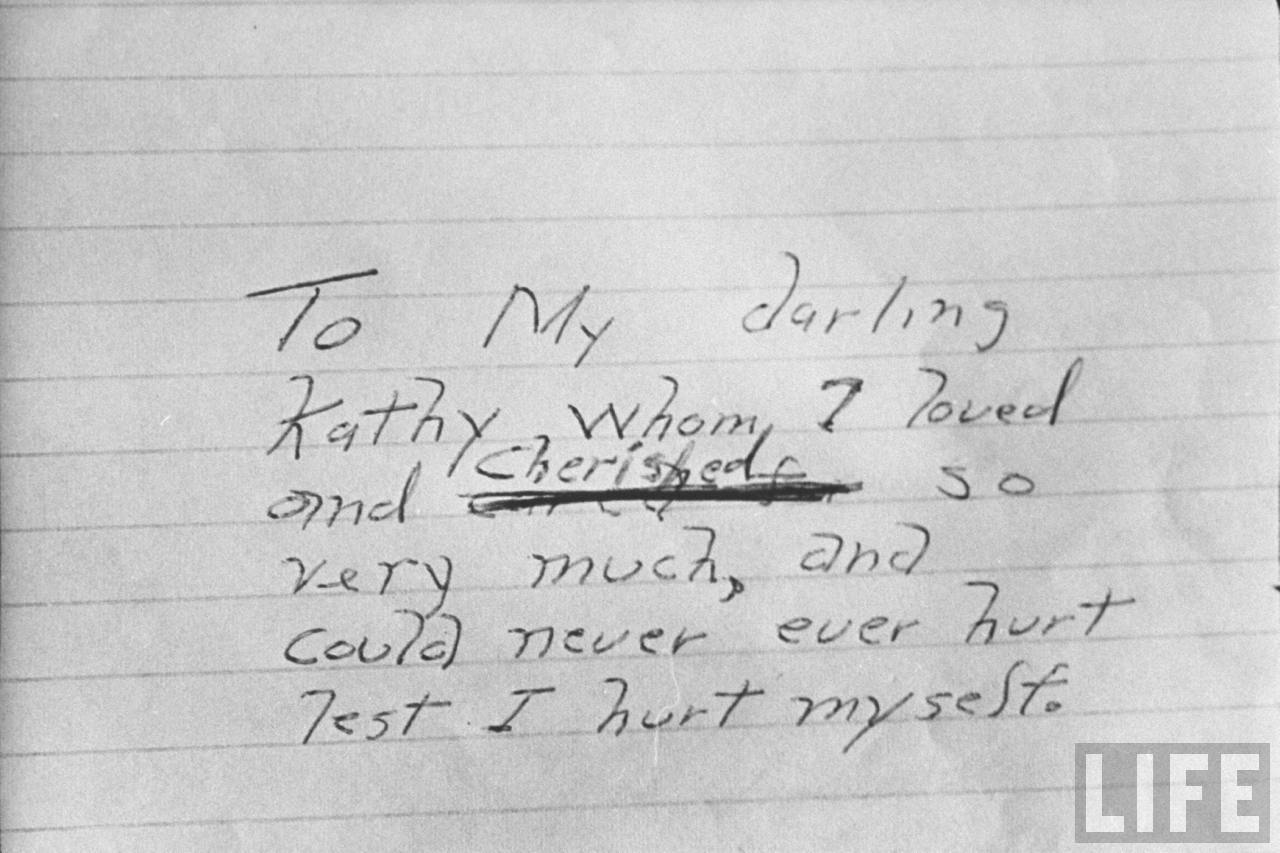 To My darling
Kathy whom I loved
Cherished
and so
very much, and
could never ever hurt
lest I hurt myself.
LIFE